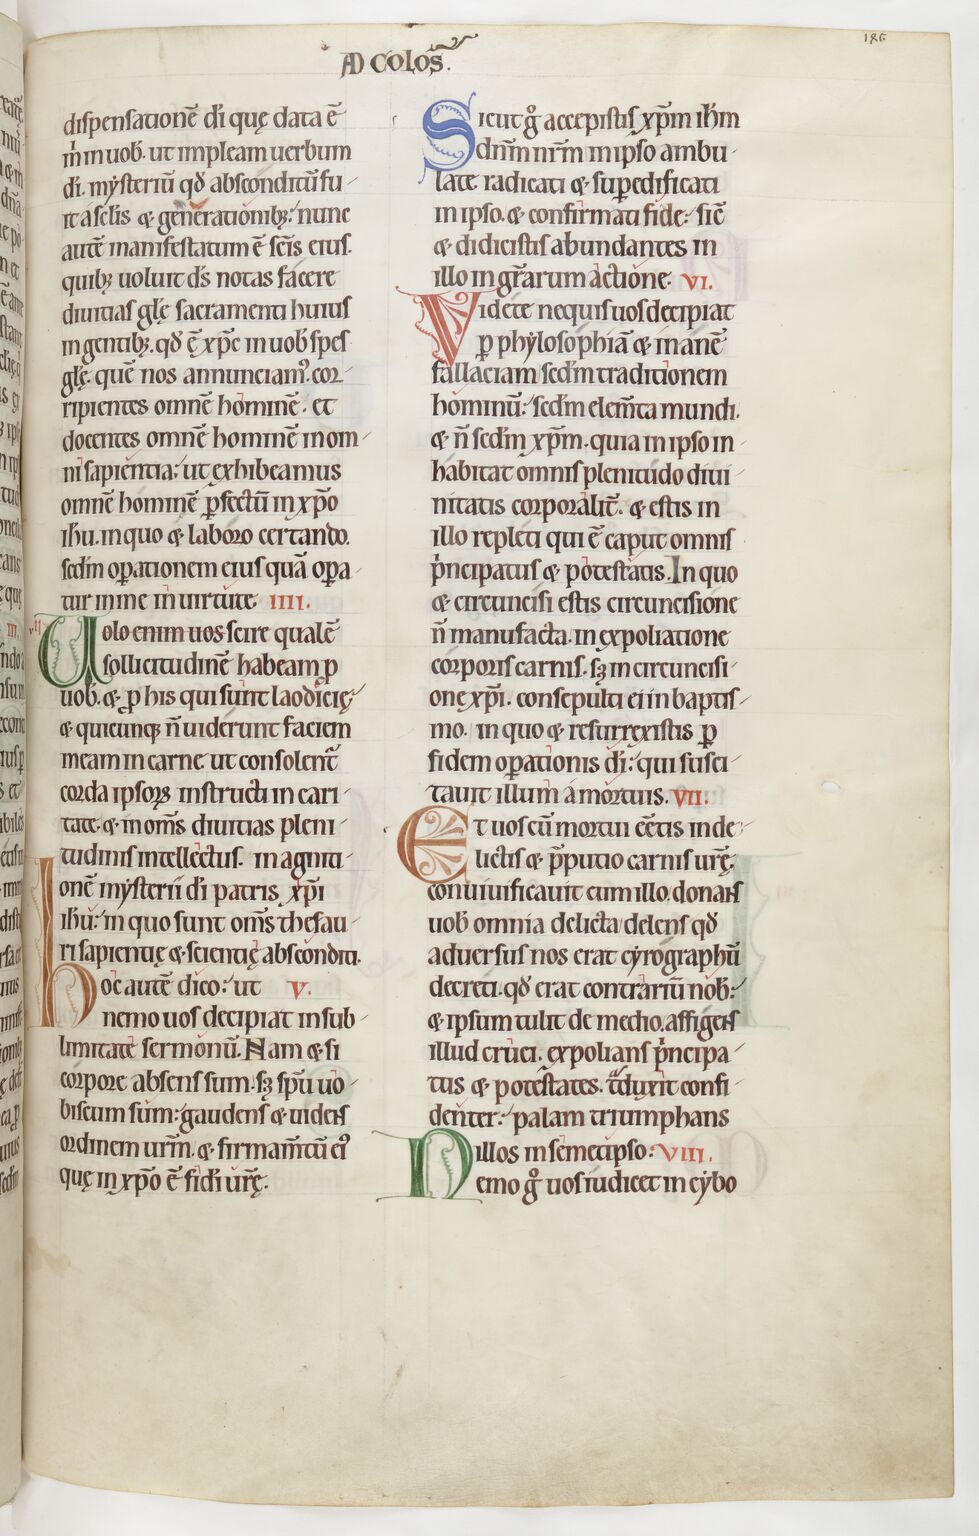 186
AD COLOS̄.
dispensationē dī quę data ē
m̄ in uob. ut impleam uerbum
dī. mẏsteriū qđ absconditū fu-
it a sclīs & generationibꝫ: nunc
autē manifestatum ē scīs eius.
quibꝫ uoluit dś notas facere
diuitias glę̄ sacramenti huius
in gentibꝫ. qđ ē xp̄c in uob spes
glę̄. quē nos annunciamꝰ. cor-
ripientes omnē hominē. et
docentes omnē hominē in om-
ni sapientia: ut exhibeamus
omnē hominē ꝑfectū in xp̄o
ihū. in quo & laboro certando.
scđm oꝑationem eius quā oꝑa-
tur in me in uirtute. IIII.
Uolo enim uos scire qualē
sollicitudinē habeam ꝓ
uob. & ꝓ his qui sunt laodicię:
& quicunqꝫ n̄ uiderunt faciem
meam in carne. ut consolent̄
corda ipsoꝝ instructi in cari-
tate. & in om̄s diuitias pleni-
tudinis intellectus. in agniti-
onē mẏsterii dī patris xp̄i
ihū: in quo sunt om̄s thesau-
ri sapientię & scientię absconditi.
Hoc autē dico: ut V.
nemo uos decipiat in sub-
limitate sermonū. Nam & si
corpore absens sum. sꝫ sp̄u uo-
biscum sum: gaudens & uidens
ordinem ur̄m. & firmam̄tū eiꝰ
quę in xp̄o ē fidī ur̄ę.
Sicut g̊ accepistis xp̄m ihm̄
dn̄m nr̄m in ipso ambu-
late radicati & suꝑedificati
in ipso. & confirmati fide: sic̄
& didicistis abundantes in
illo in gr̄arum actione. VI.
Videte nequis uos decipiat
ꝑ phẏlosophiā & inanē
fallaciam scđm traditionem
hominū: scđm elem̄ta mundi.
& n̄ scđm xp̄m. quia in ipso in-
habitat omnis plenitudo diui-
nitatis corporalit̄. & estis in
illo repleti qui ē caput omnis
p̍ncipatus & potestatis. In quo
& circuncisi estis circuncisione
n̄ manufacta. in expoliatione
corporis carnis. sꝫ in circuncisi-
one xp̄i. consepulti ei in baptis-
mo. in quo & resurrexistis ꝑ
fidem oꝑationis dī: qui susci-
tauit illum a mortuis. VII.
Et uos cū mortui eētis in de-
lictis & p̄putio carnis ur̄ę:
conuiuificauit cum illo. donans
uob omnia delicta delens qđ
aduersus nos erat cẏrographū
decreti. qđ erat contrariū nob:
& ipsum tulit de medio. affigens
illud cruci. expolians p̍ncipa-
tus & potestates. t̄duxit confi-
denter: palam triumphans
illos in semetipso: VIII.
Nemo g̊ uos iudicet in cẏbo